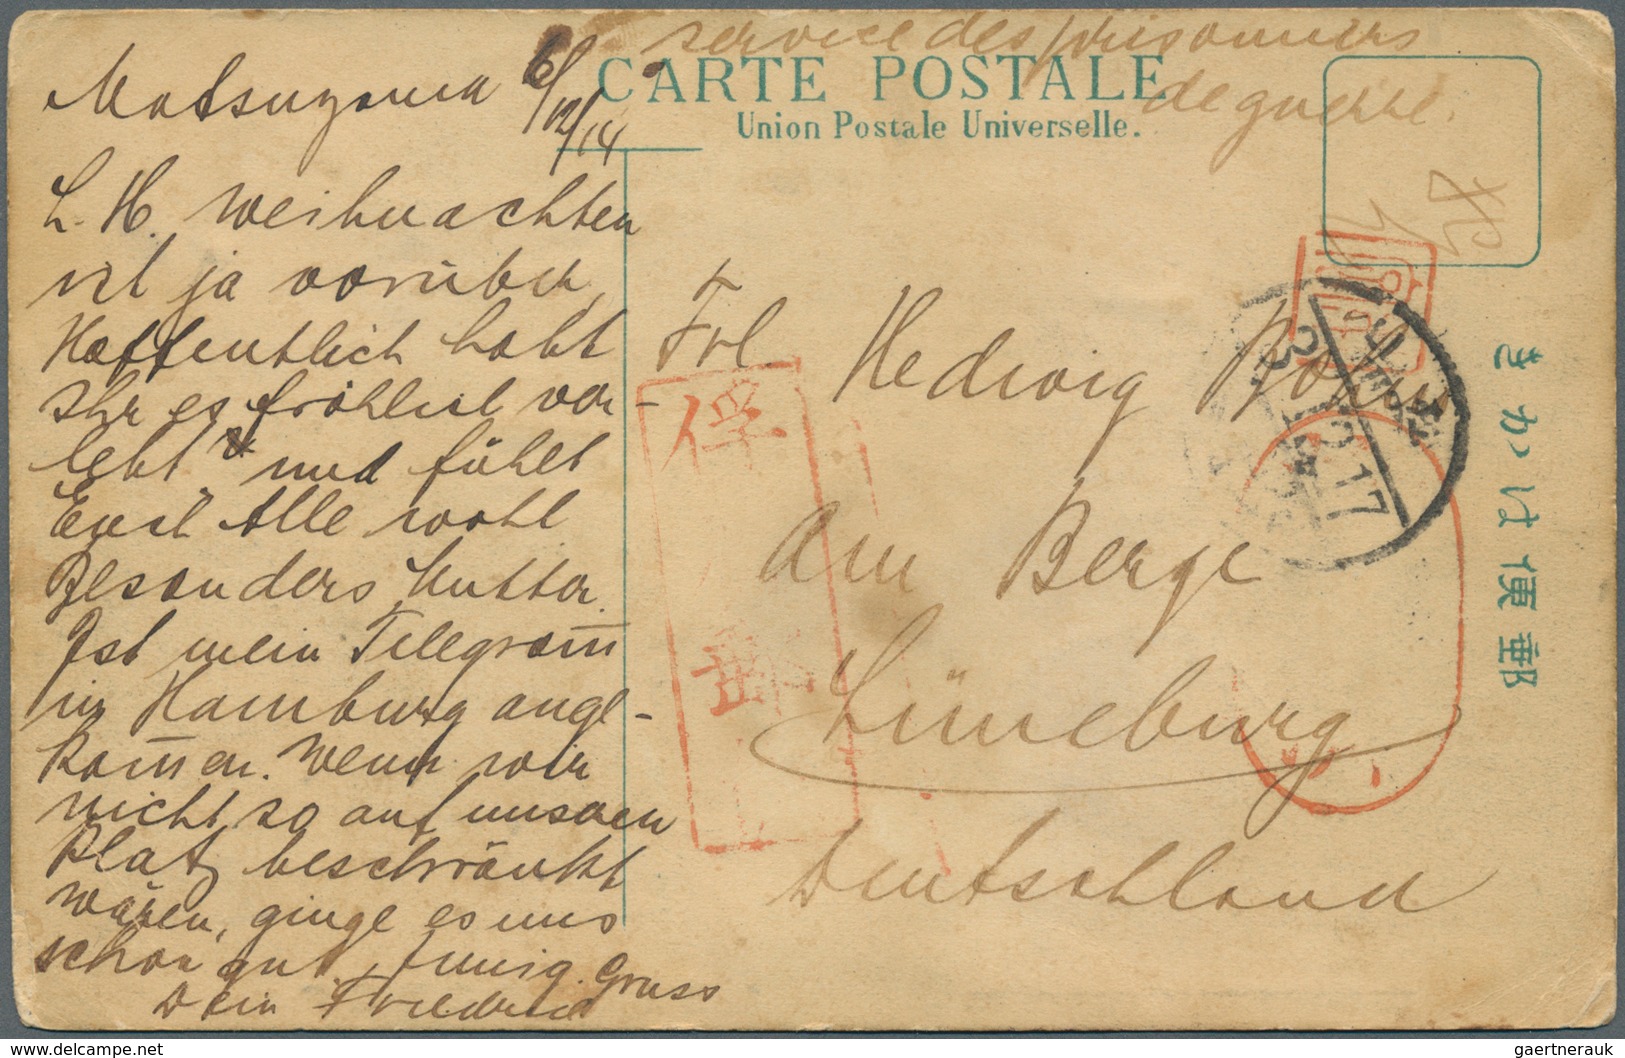 service des prisonniers
de guerre.
CARTE POSTALE
Union Postale Universelle.
Matsuyama 6/12/14
L. H. Weihnachten
ist ja vorüber
Hoffentlich habt
Ihr es fröhlich ver-
lebt und fühlt
Euch Alle wohl
Besonders Mutter.
Ist mein Telegram̅
in Hamburg ange-
kom̅en. Wenn wir
nicht so auf unseren
Platz beschränkt
wären, ginge es uns
schon gut. Innig. Gruss
Dein Friedrich
Frl. Hedwig
Am Berge
Lüneburg
Deutschland
俘
きかは便郵
2.17
delcampe.net
gaertnerauk